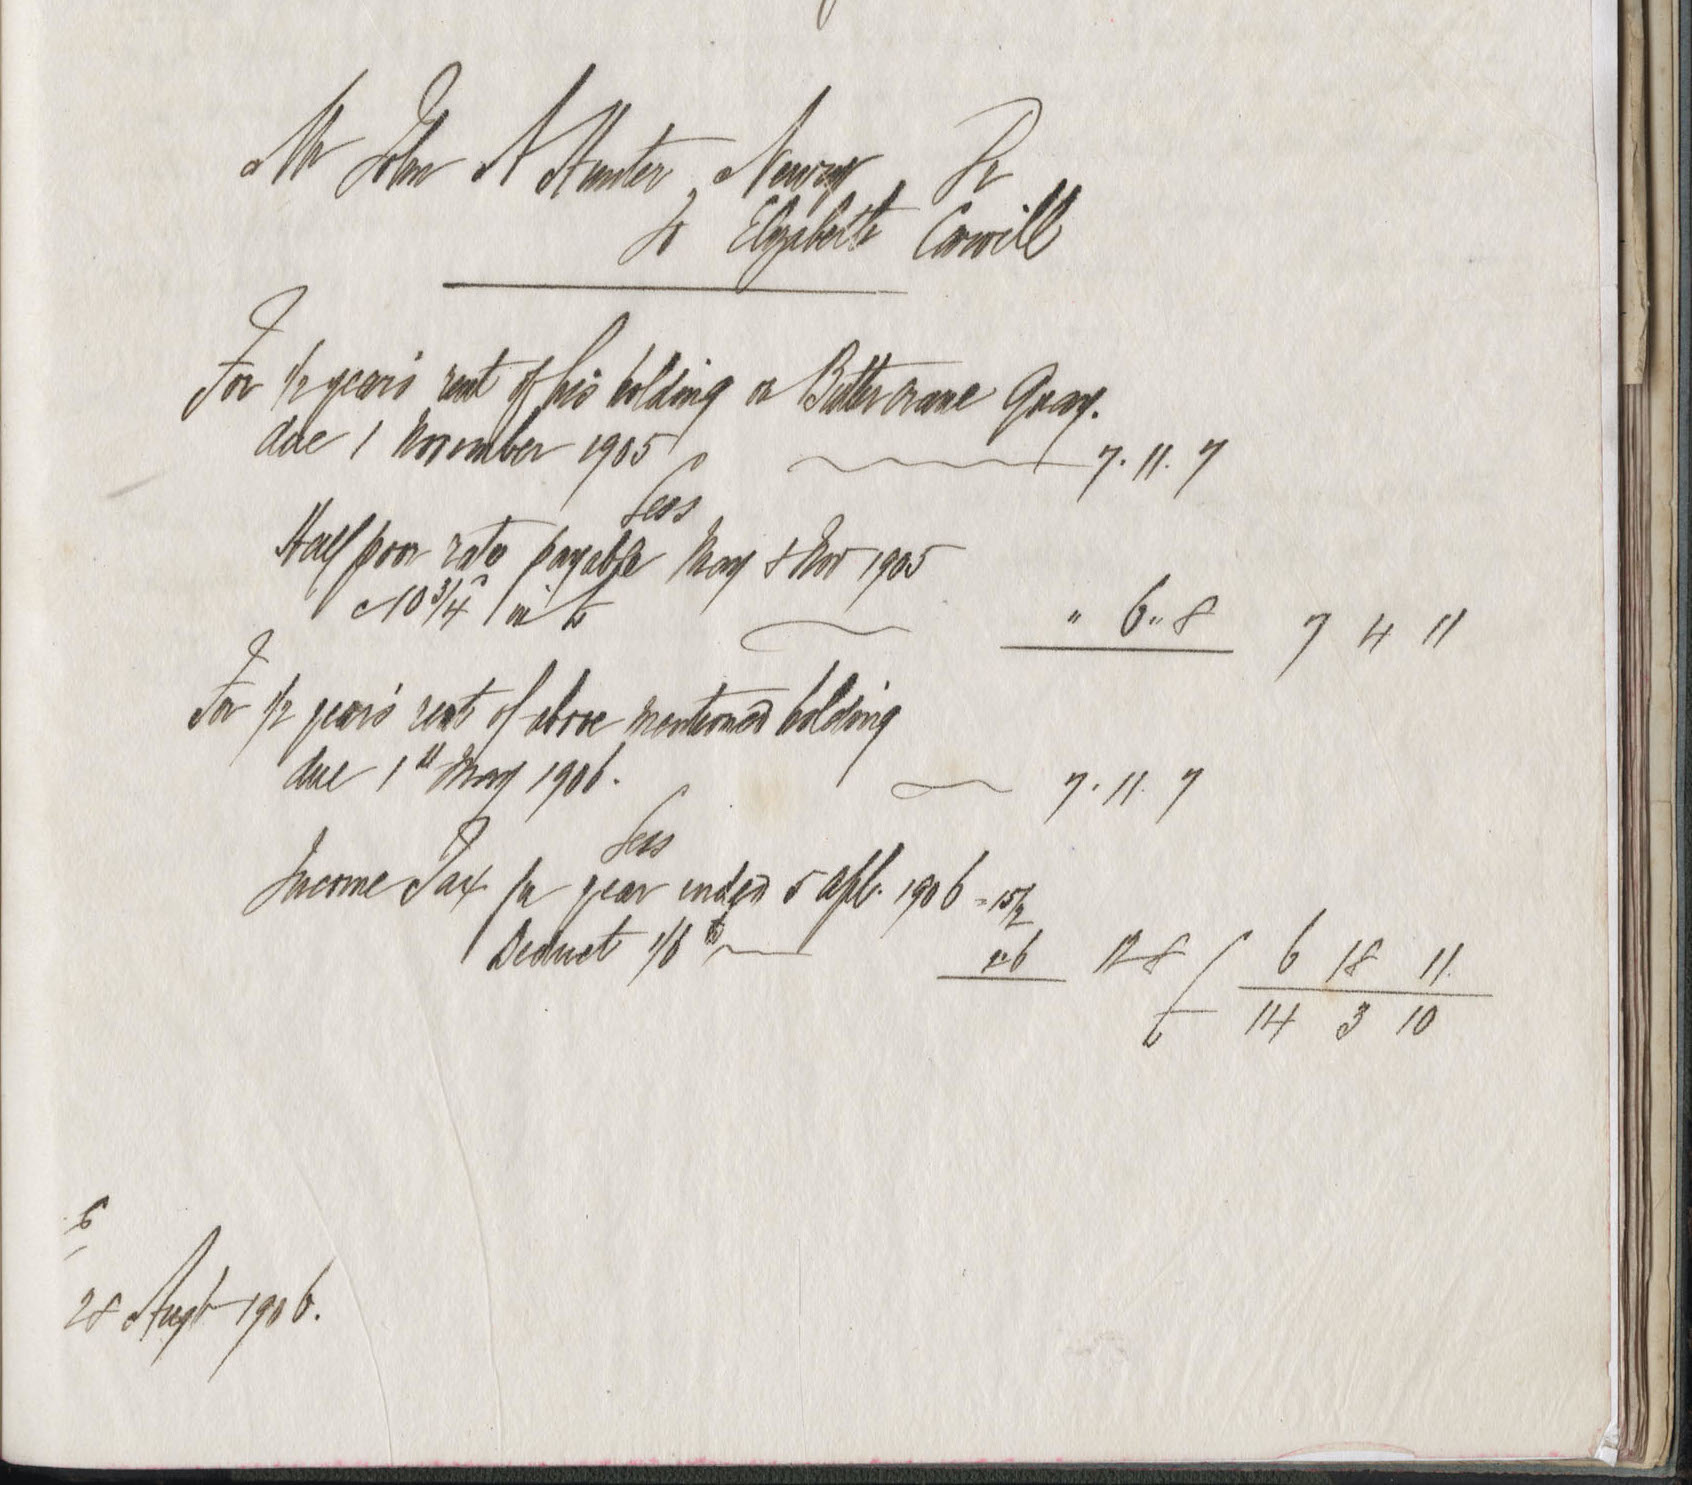 Mr John A Hunter, Newry Dr
To Elizabeth Carvill
For 1/2 years rent of his holding on Buttercrane Quay.
due 1 November 1905 7. 11. 7
Less
Half poor rate payable May & Nov 1905
@ 10 3/4d in £ " 6 " 8 7 4 11
For 1/2 years rent of above mentioned holding
due 1st May 1906. 7. 11. 7
Less
Income Tax for year ended 5 Apl. 1906 = 15/2
Deduct 1/6th 2.6 12 8 6 18 11
£ 14 3 10
28 Augt 1906.